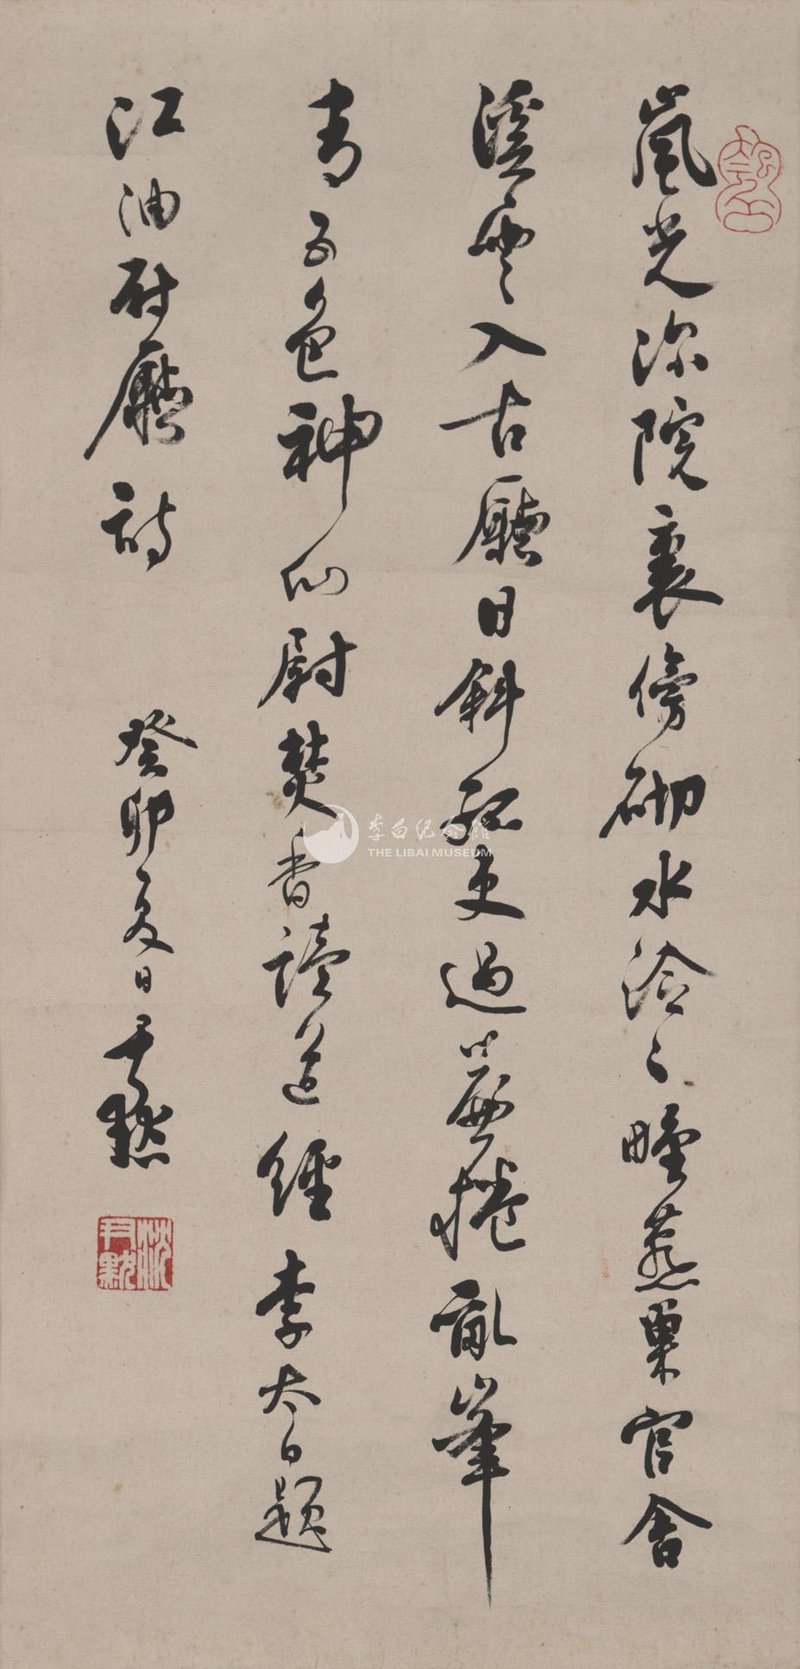 嵐光深院裏傍砌水泠〻野燕巢官舍
溪雲入古廳日斜孤吏過簾捲亂峯
青五色神仙尉焚香讀道經李太白題
江油尉廳詩
癸卯夏日尹默
沈尹默
李白纪念馆
THE LIBAI MUSEUM